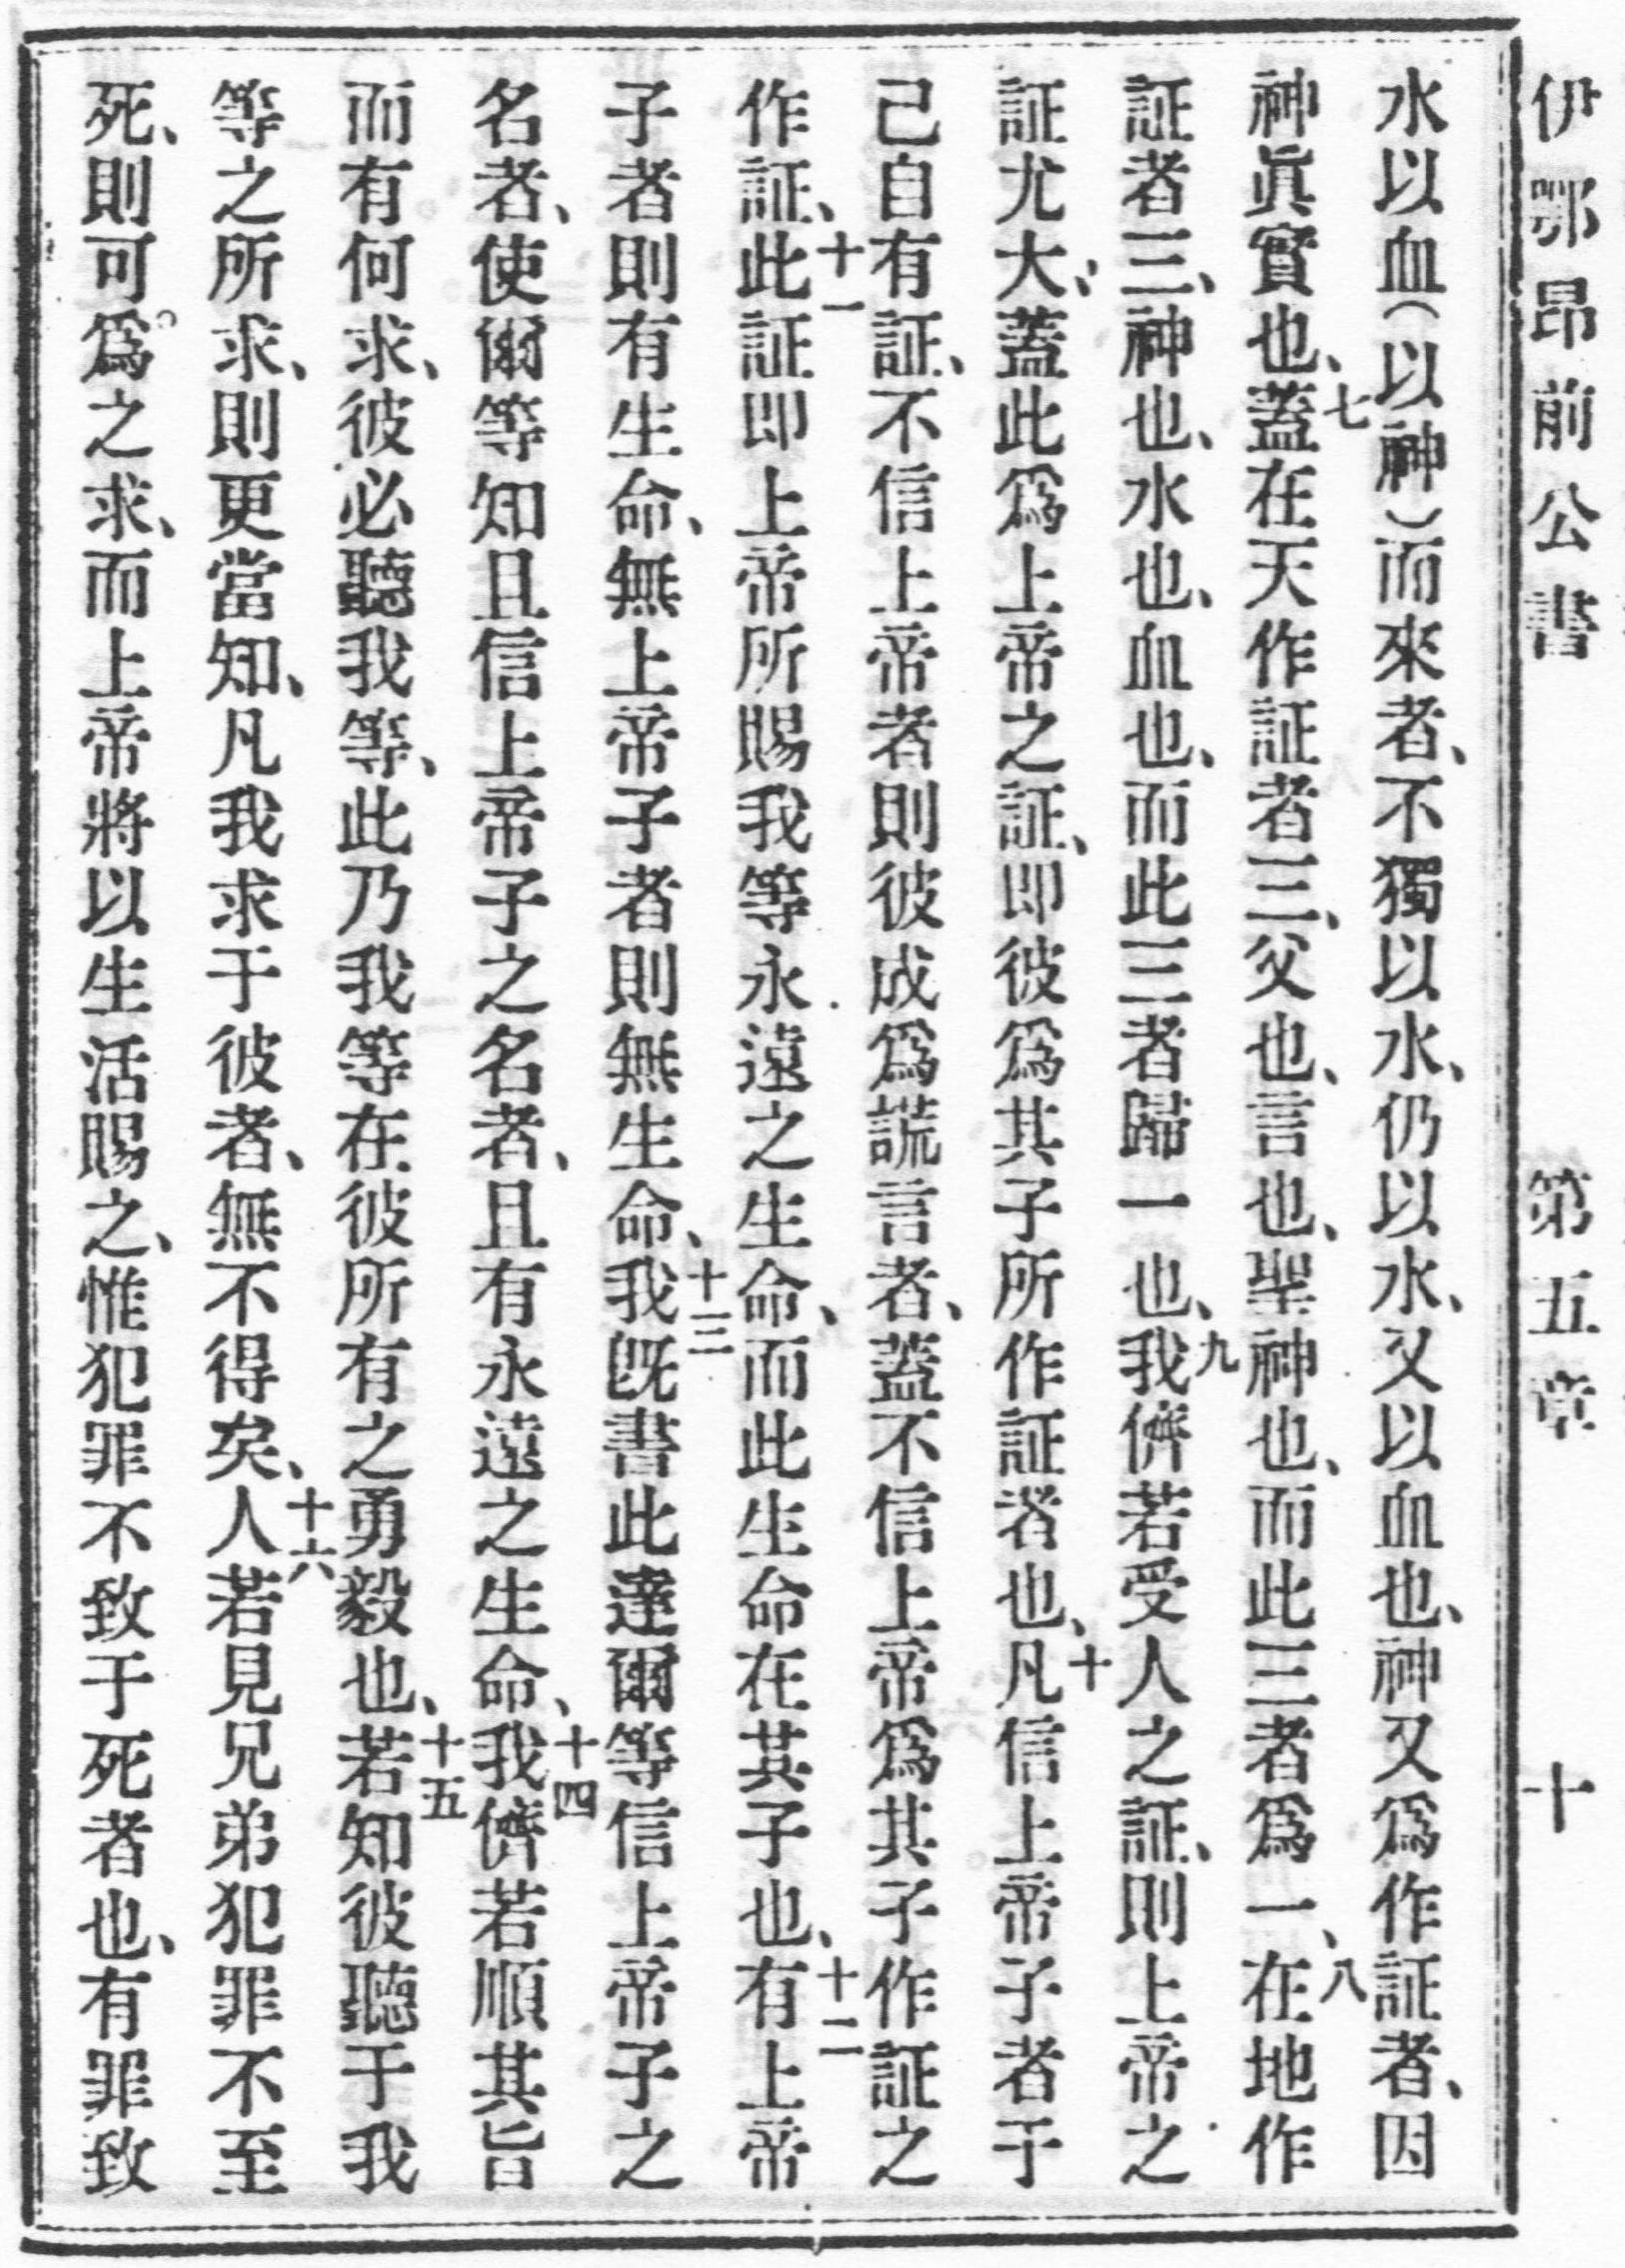 伊鄂昂前公書 第五章 十
水以血(以神)而來者、不獨以水、仍以水、又以血也、神又爲作証者、因
神眞實也、七蓋在天作証者三、父也、言也、聖神也、而此三者爲一、八在地作
証者三、神也、水也、血也、而此三者歸一也、九我儕若受人之証、則上帝之
証尤大、蓋此爲上帝之証、即彼爲其子所作証者也、十凡信上帝子者于
己自有証、不信上帝者則彼成爲謊言者、蓋不信上帝爲其子作証之
作証、十一此証即上帝所賜我等永遠之生命、而此生命在其子也、十二有上帝
子者則有生命、無上帝子者則無生命、十三我既書此達爾等信上帝子之
名者、使爾等知且信上帝子之名者、且有永遠之生命、十四我儕若順其旨
而有何求、彼必聽我等、此乃我等在彼所有之勇毅也、十五若知彼聽于我
等之所求、則更當知、凡我求于彼者、無不得矣、十六人若見兄弟犯罪不至
死、則可。爲之求、而上帝將以生活賜之、惟犯罪不致于死者也、有罪致